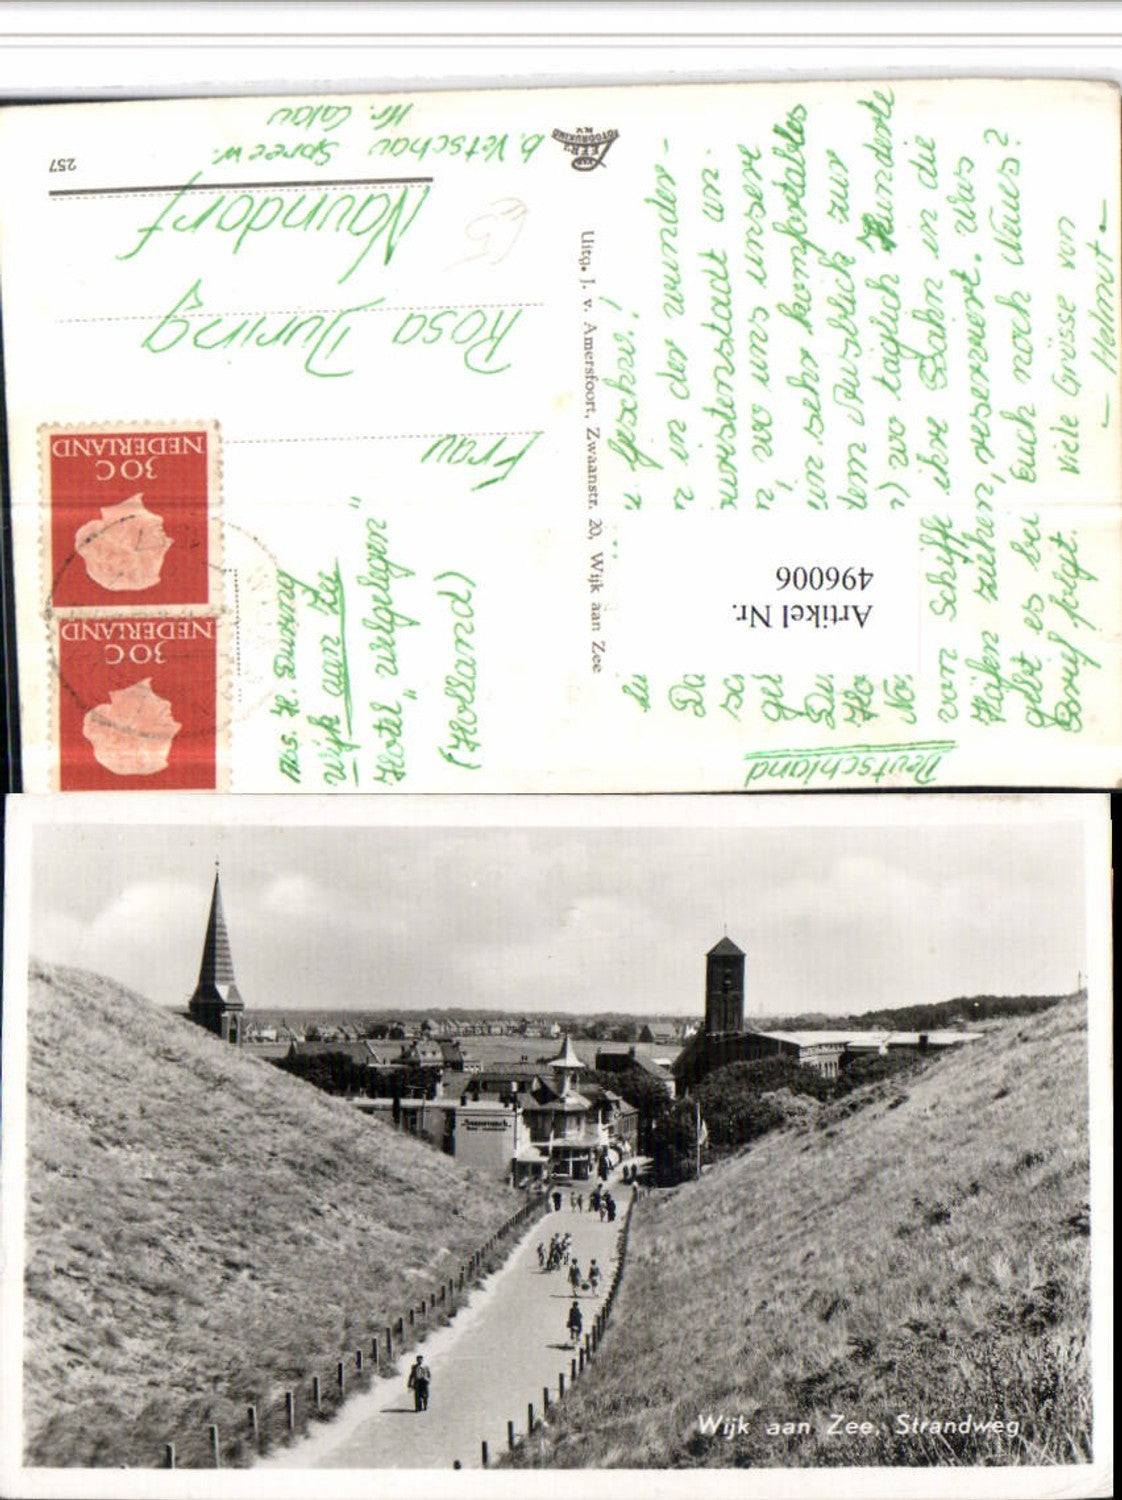 257
Frau
Rosa Düring
Naundorf
b. Vetschau Spreew.
Kr. Calau
Deutschland
NEDERLAND
30 C
NEDERLAND
30 C
Abs. H. Düring
Wijk aan Zee
Hotel „Welgelegen"
(Holland)
Uitg. J. v. Amersfoort, Zwaanstr. 20, Wijk aan Zee
VAN LEER'S
FOTODRUKIND
N.V.
u. Geschw.!
in der wunder-
in
wo uns unsere
in sehr komfortables
Ausblick zur
wo täglich Hunderte
von Schiffe ihre Bahn in die
Häfen ziehen, reserviert. Was
gibt es bei Euch noch Neues?
Brief folgt. Viele Grüsse von
— Helmut. —
Artikel Nr.
496006
Wijk aan Zee, Strandweg